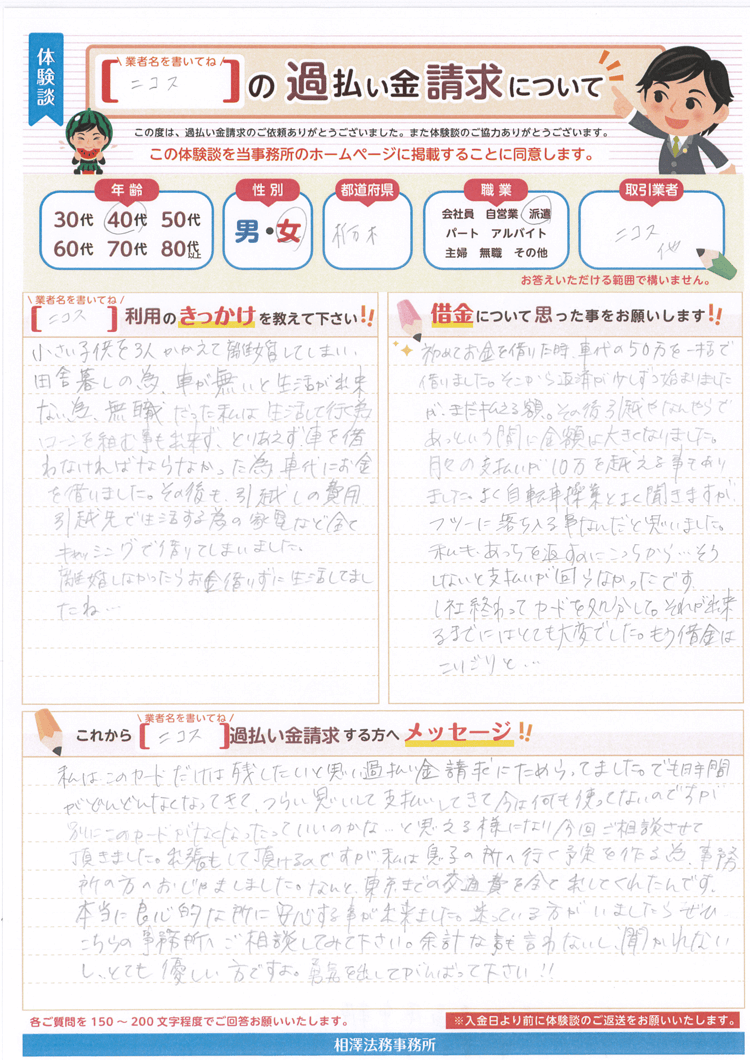 体験談
\ 業者名を書いてね /
[ニコス]の過払い金請求について
この度は、過払い金請求のご依頼ありがとうございました。また体験談のご協力ありがとうございます。
この体験談を当事務所のホームページに掲載することに同意します。
年齢
30代 40代 50代
60代 70代 80代以上
性別
男・女
都道府県
栃木
職業
会社員 自営業 派遣
パート アルバイト
主婦 無職 その他
取引業者
ニコス
他
お答えいただける範囲で構いません。
\ 業者名を書いてね /
[ニコス]利用のきっかけを教えて下さい!!
小さい子供を3人かかえて離婚してしまい、
田舎暮しの為、車が無いと生活が出来
ない為、無職だった私は生活して行く為
ローンを組む事も出来ず、とりあえず車を借
わなければならなかった為車代にお金
を借いました。その後も、引越しの費用
引越先で生活する為の家電など全て
キャッシングで借りてしまいました。
離婚しなかったらお金借りずに生活してまし
たね…
借金について思った事をお願いします!!
初めてお金を借りた時、車代の50万を一括で
借いました。そこから返済が少しずつ始まりました
が、まだ払える額。その後引越やなんやらで
あっという間に金額は大きくなりました。
月々の支払いが10万を越える事もあり
ました。よく自転車操業とよく聞きますが、
フツーに落ち入る事なんだと思いました。
私も、あっちを返すのにこっちから…そう
しないと支払いが回らなかったです。
1社終わってカードを処分して。それが出来
るまでにはとても大変でした。もう借金は
こりごりと…
\ 業者名を書いてね /
これから[ニコス]過払い金請求する方へメッセージ!!
私はこのカードだけは残したいと思い過払い金請求にためらってました。でも時間
がどんどんなくなってきて、つらい思いして支払いしてきて今は何も使ってないのですが
別にこのカードがなくなったっていいのかな…と思える様になり今回ご相談させて
頂きました。出張もして頂けるのですが私は息子の所へ行く予定を作る為、事務
所の方へおじゃましました。なんと、東京までの交通費を全て出してくれたんです。
本当に良心的な所に安心する事が出来ました。迷っている方がいましたらぜひ
こちらの事務所へご相談してみて下さい。余計な事も言わないし、聞かれない
し、とても優しい方ですよ。勇気を出してがんばって下さい!!
各ご質問を150～200文字程度でご回答お願いいたします。
※入金日より前に体験談のご返送をお願いいたします。
相澤法務事務所